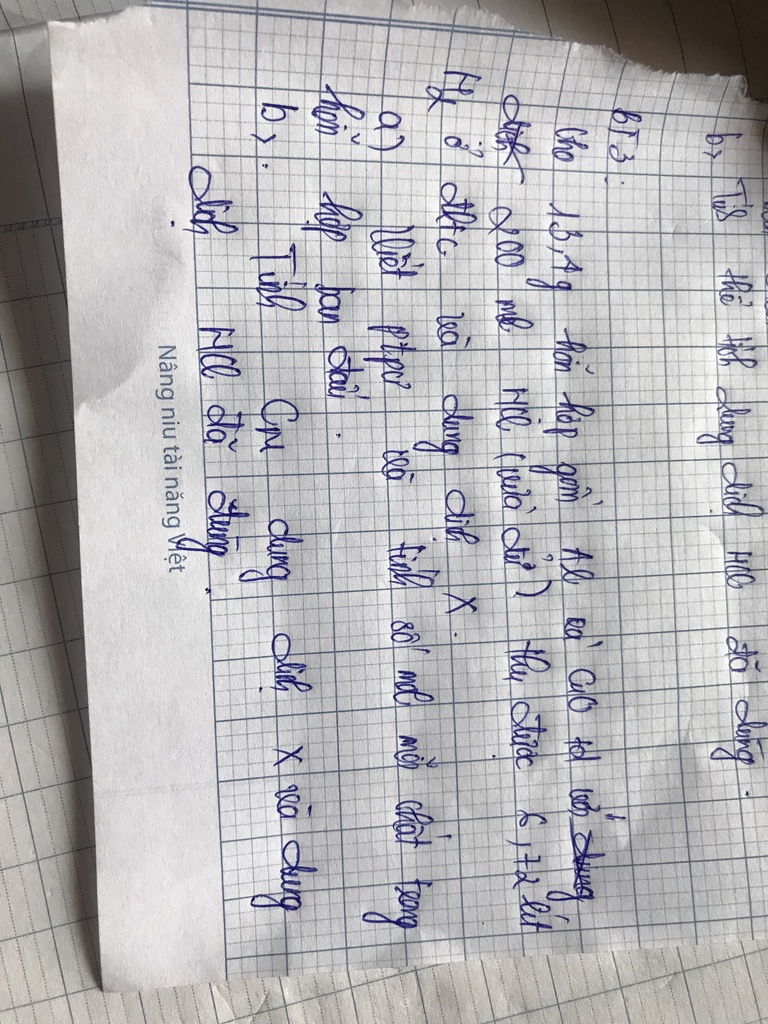 b> Tính thể tích dung dịch HCl đã dùng.
BT3:
Cho 13,4g hỗn hợp gồm Al và CuO td với
200 ml HCl (vừa đủ) thu được 6,72 lít
H2 ở đktc và dung dịch X.
a) Viết ptpư và tính số mol mỗi chất trong
hỗn hợp ban đầu.
b>. Tính CM dung dịch X và dung
dịch HCl đã dùng.
Nâng niu tài năng Việt